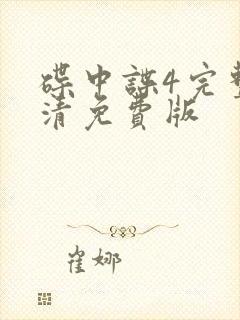 碟中諜4完整
清免費版
崔娜